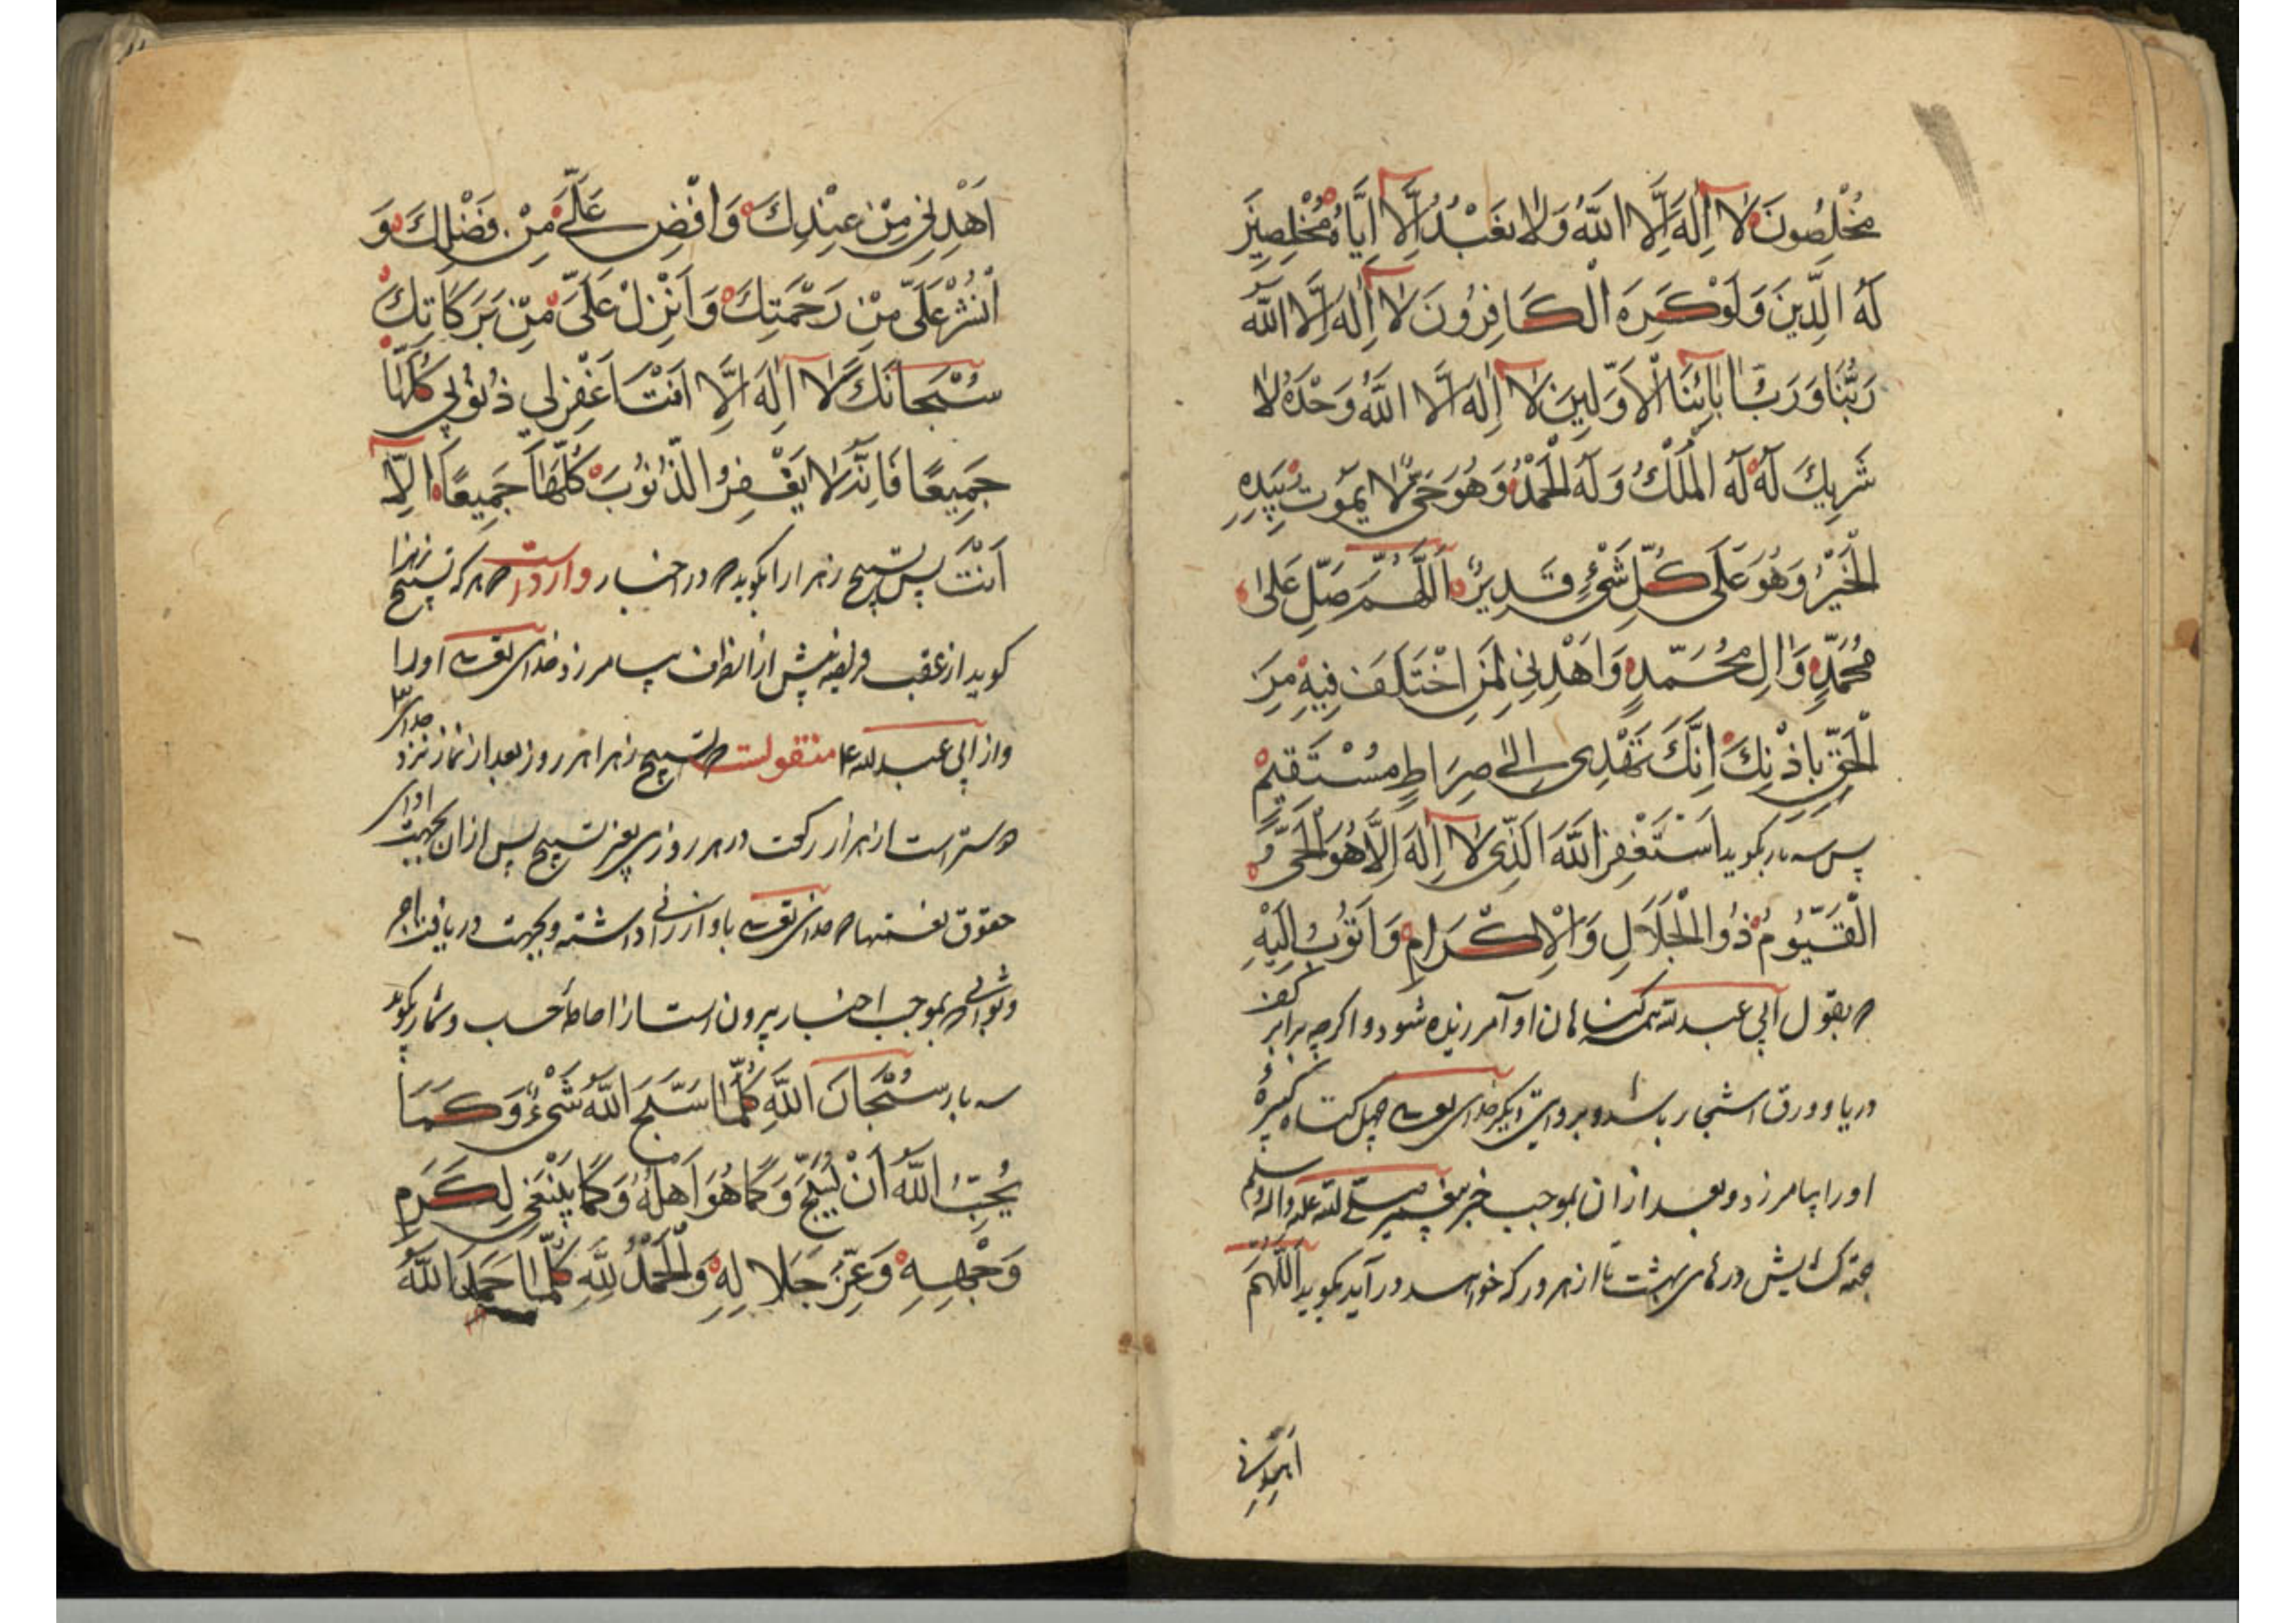 مُخْلِصُونَ لا اِلهَ اِلَّا اللّهُ وَلا نَعْبُدُ اِلَّا اِيَّاهُ مُخْلِصِينَ
لَهُ الدِّينَ وَلَوْ كَرِهَ الْكَافِرُونَ لا اِلهَ اِلَّا اللّهُ
رَبُّنَا وَرَبُّ ابَائِنَا الْاَوَّلِينَ لا اِلهَ اِلَّا اللّهُ وَحْدَهُ لا
شَرِيكَ لَهُ لَهُ الْمُلْكُ وَلَهُ الْحَمْدُ وَهُوَ حَيٌّ لا يَمُوتُ بِيَدِهِ
الْخَيْرُ وَهُوَ عَلَى كُلِّ شَيْءٍ قَدِيرٌ اَللّهُمَّ صَلِّ عَلى
مُحَمَّدٍ وَالِ مُحَمَّدٍ وَاهْدِنِي لِمَا اخْتَلَفَ فِيهِ مِنَ
الْحَقِّ بِاِذْنِكَ اِنَّكَ تَهْدِي اِلى صِرَاطٍ مُسْتَقِيمٍ
پس سه بار بكويد اَسْتَغْفِرُ اللّهَ الَّذِي لا اِلهَ اِلَّا هُوَ الْحَيُّ وَ
الْقَيُّومُ ذُو الْجَلَالِ وَالْاِكْرَامِ وَاَتُوبُ اِلَيْهِ
كه بقول ابي عبد الله ع كناهان او آمرزيده شود و اكرچه برابر كف
دريا و ورق اشجار باشد و بروايتي ديكر خداي تعالى چهل كناه كبيرهٔ
او را بيامرزد و بعد از ان بموجب خبر پيغمبر صلى الله عليه واله وسلم
جهة كشايش درهاى بهشت تا از هر در كه خواهد در آيد بكويد اَللّهُمَّ
اهْدِنِي
اَهْدِنِي مِنْ عِنْدِكَ وَافْضِ عَلَيَّ مِنْ فَضْلِكَ وَ
انْشُرْ عَلَيَّ مِنْ رَحْمَتِكَ وَاَنْزِلْ عَلَيَّ مِنْ بَرَكَاتِكَ
سُبْحَانَكَ لا اِلهَ اِلَّا اَنْتَ اغْفِرْ لِي ذُنُوبِي كُلَّهَا
جَمِيعًا فَاِنَّهُ لا يَغْفِرُ الذُّنُوبَ كُلَّهَا جَمِيعًا اِلَّا
اَنْتَ پس تسبيح زهرا را بكويد كه در اخبار وارد است كه هر كه تسبيح زهرا
كويد از عقب فريضه پيش از انكه بيامرزد خداي تعالى او را
و از ابي عبد الله ع منقولست كه تسبيح زهرا هر روز بعد از نماز نزد خداى
دوستر است از هزار ركعت در هر روزى بغير تسبيح پس از ان بجهت اداى
حقوق نعمتها كه خداى تعالى باو ارزانى داشته و بجهت دريافت اجر
و ثوابى كه بموجب اخبار بيرون است از احاطهٔ حسب و شمار بكويد
سه بار سُبْحَانَ اللّهِ كُلَّمَا سَبَّحَ اللّهَ شَيْءٌ وَكَمَا
يُحِبُّ اللّهُ اَنْ يُسَبَّحَ وَكَمَا هُوَ اَهْلُهُ وَكَمَا يَنْبَغِي لِكَرَمِ
وَجْهِهِ وَعِزِّ جَلالِهِ وَالْحَمْدُ لِلّهِ كُلَّمَا حَمِدَ اللّهَ